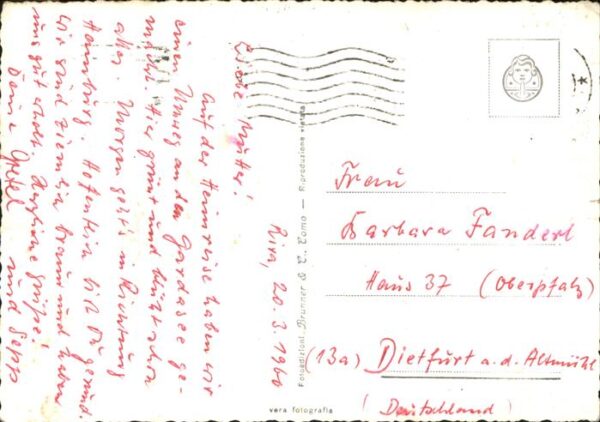 Riva, 20.3.1960
Liebe Mutter!
Auf der Heimreise haben wir
einen Umweg an den Gardasee ge-
macht. Hier grünt und blüht schon
alles. Morgen geht's in Richtung
Hoffentlich bist Du gesund.
Wir sind ziemlich braun und haben
uns gut erholt. Herzliche Grüße!
Deine Gretel und Sepp
Fotoedizioni Brunner & C. Como — Riproduzione vietata
vera fotografia
Frau
Barbara Fanderl
Haus 37 (Oberpfalz)
(13a) Dietfurt a.d. Altmühl
(Deutschland)